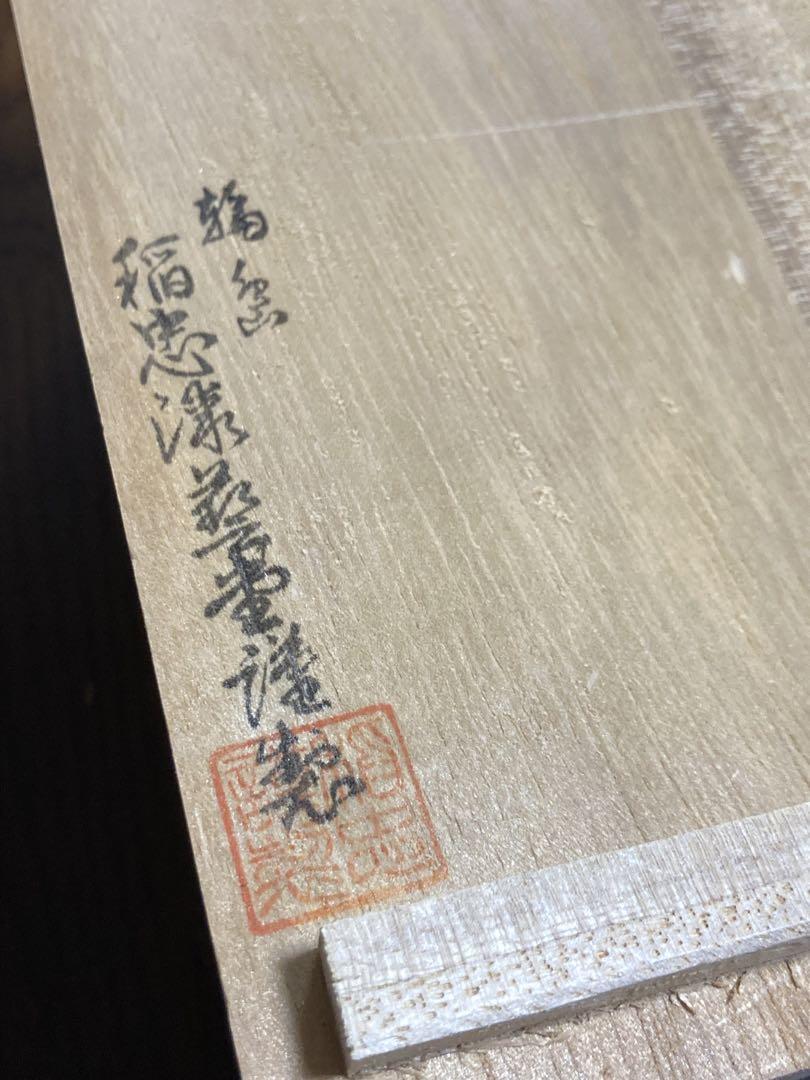 輪島
稲忠漆芸堂謹製